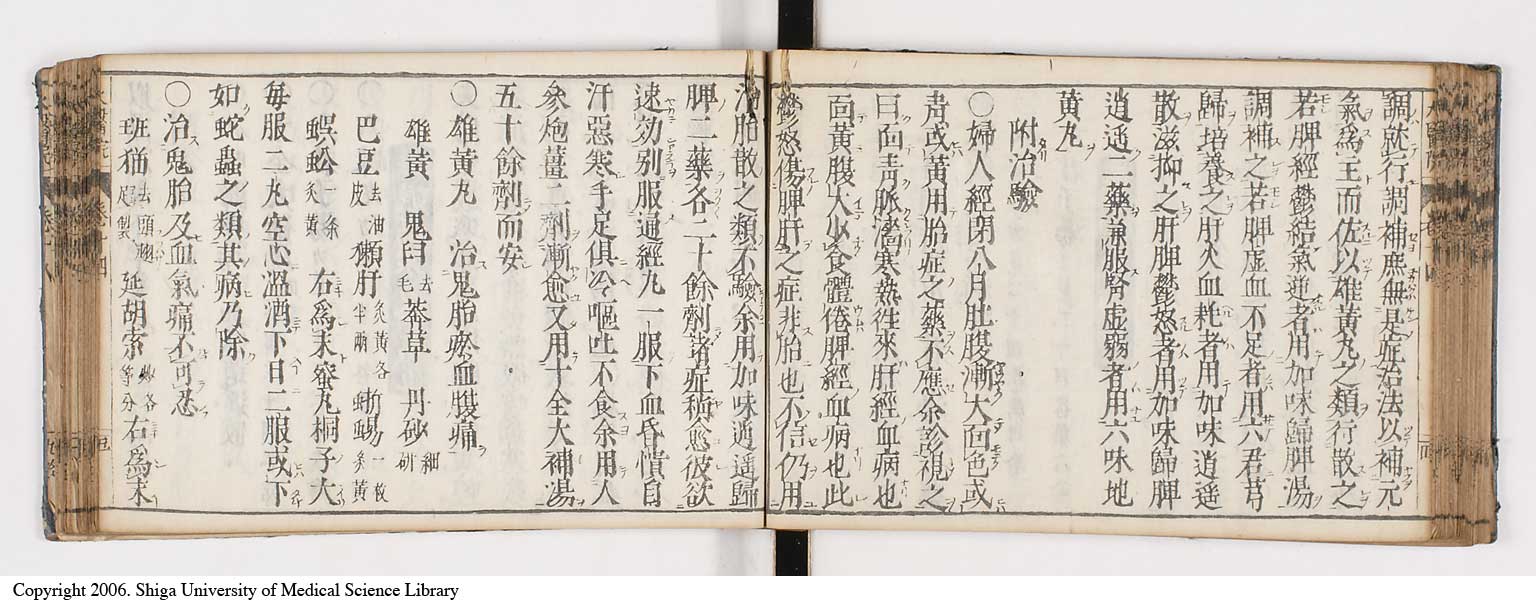 調就行調補庶無是症治法以補元
氣爲主而佐以雄黃丸之類行散之
若脾經鬱結氣逆者用加味歸脾湯
調補之若脾虛血不足者用六君芎
歸培養之肝火血耗者用加味逍遥
散滋抑之肝脾鬱怒者用加味歸脾
逍遥二藥兼服腎虛弱者用六味地
黃丸
附治驗
〇婦人經閉八月肚腹漸大面色或
靑或黃用胎症之藥不應余診視之
曰面靑脈濇寒熱往來肝經血病也
面黃腹大少食體倦脾經血病也此
鬱怒傷脾肝之症非胎也不信仍用
治胎散之類不驗余用加味逍遥歸
脾二藥各二十餘劑諸症稍愈彼欲
速効別服通經丸一服下血昏憒自
汗惡寒手足俱冷嘔吐不食余用人
參炮薑二劑漸愈又用十全大補湯
五十餘劑而安
〇雄黃丸 治鬼胎瘀血腹痛
雄黃 鬼臼去毛 莽草 丹砂細研
巴豆去油皮 獺肝炙黃各半兩 蜥蜴一枚炙黃
蜈蚣一條炙黃 右爲末蜜丸桐子大
每服二丸空心溫酒下日二服或下
如蛇蟲之類其病乃除
〇治鬼胎及血氣痛不可忍
班猫去頭翅足製 延胡索炒各等分 右爲末